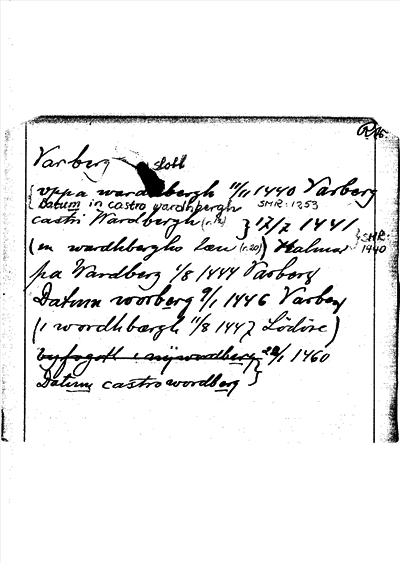 Varberg slott
{ uppa wardbergh 11/11 1440 Varberg
Datum in castro wardhbergh SMR: 1253
castri Wardbergh } 17/7 1441
(in wardhberghs læn (r.20)) Halmst SMR 1440
pa Vardberg 1/8 1444 Varberg
Datum worberg 9/1 1446 Varberg
(i wordhbærgh 11/8 1447 Lödöse)
byfogott i nÿwordberg 28/1 1460
Datum castro wordberg }